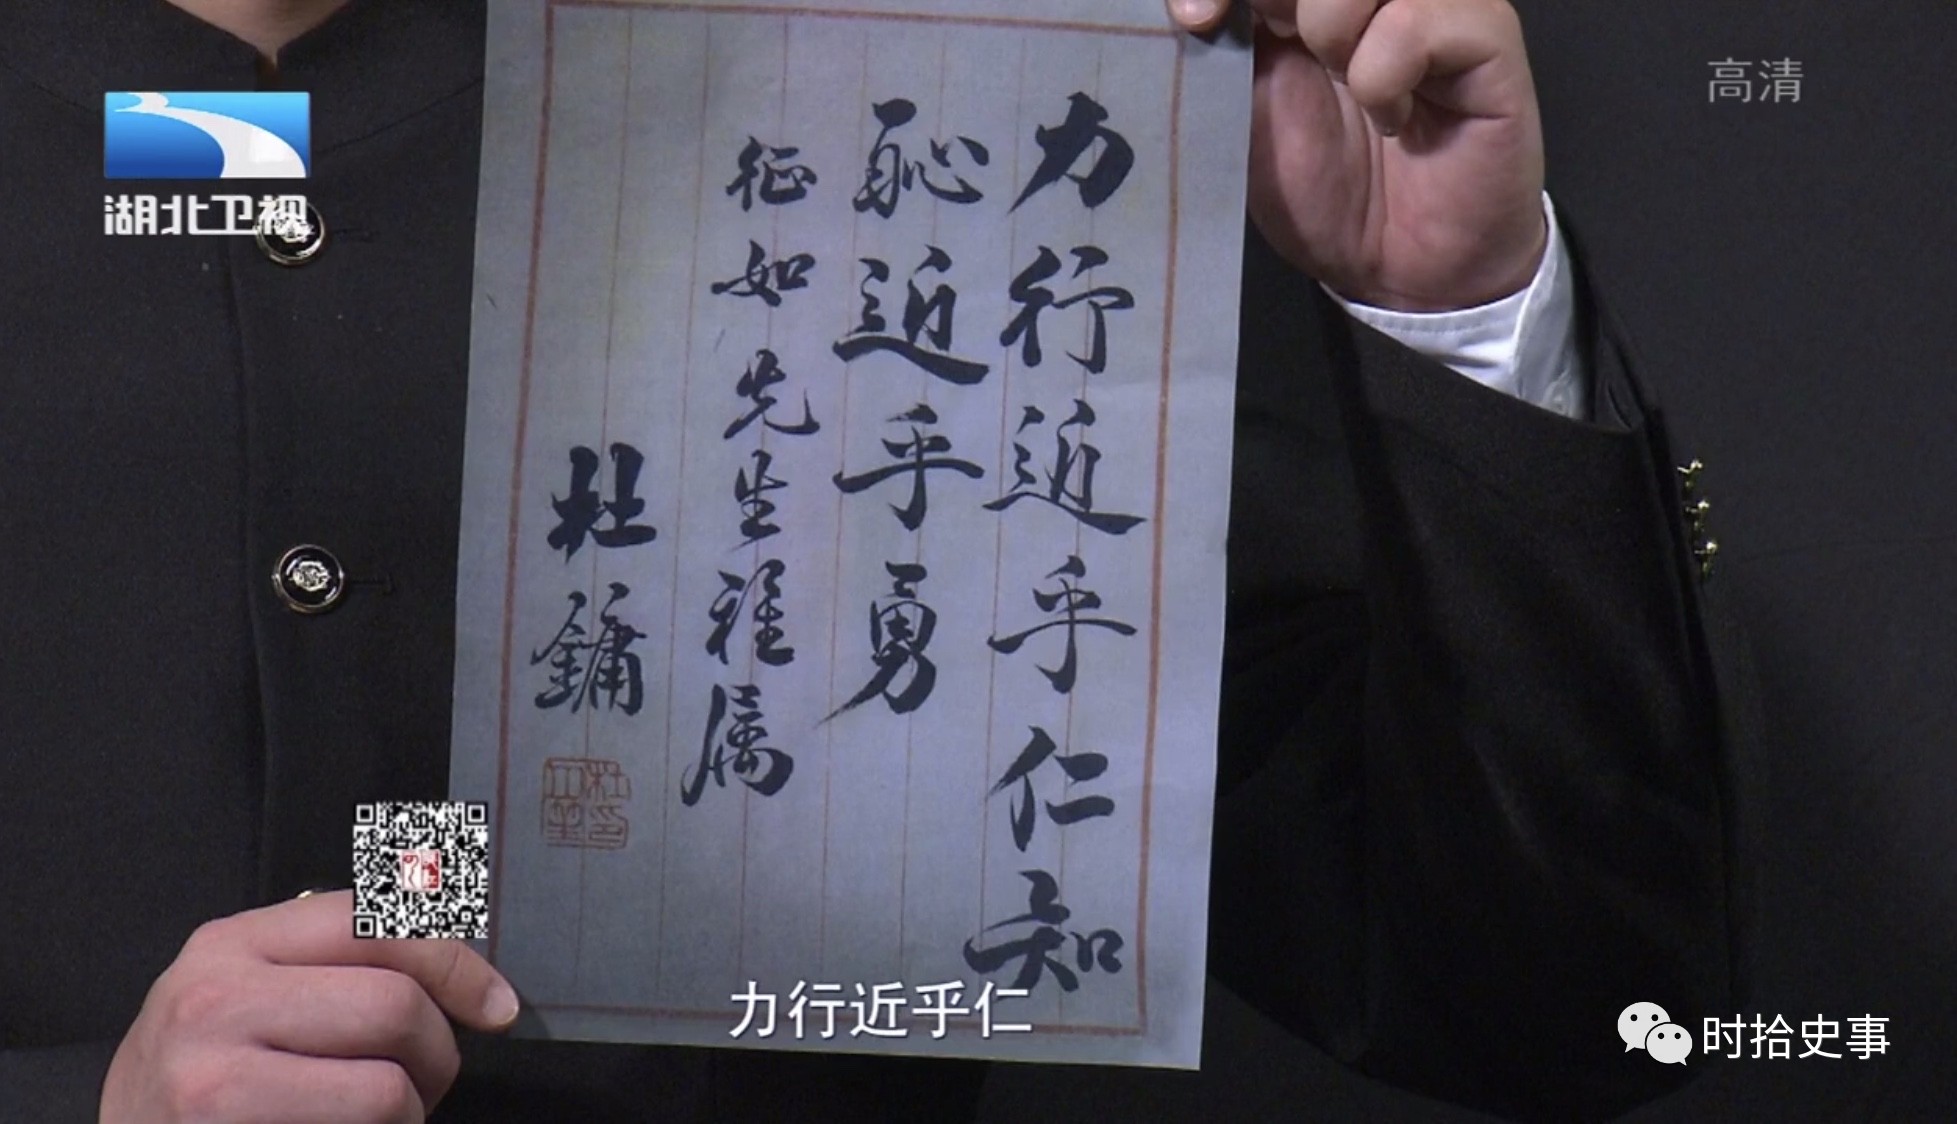 高清
湖北卫视
力行近乎仁知
恥近乎勇
征如先生雅属
杜鏞
杜印月笙
力行近乎仁
时拾史事